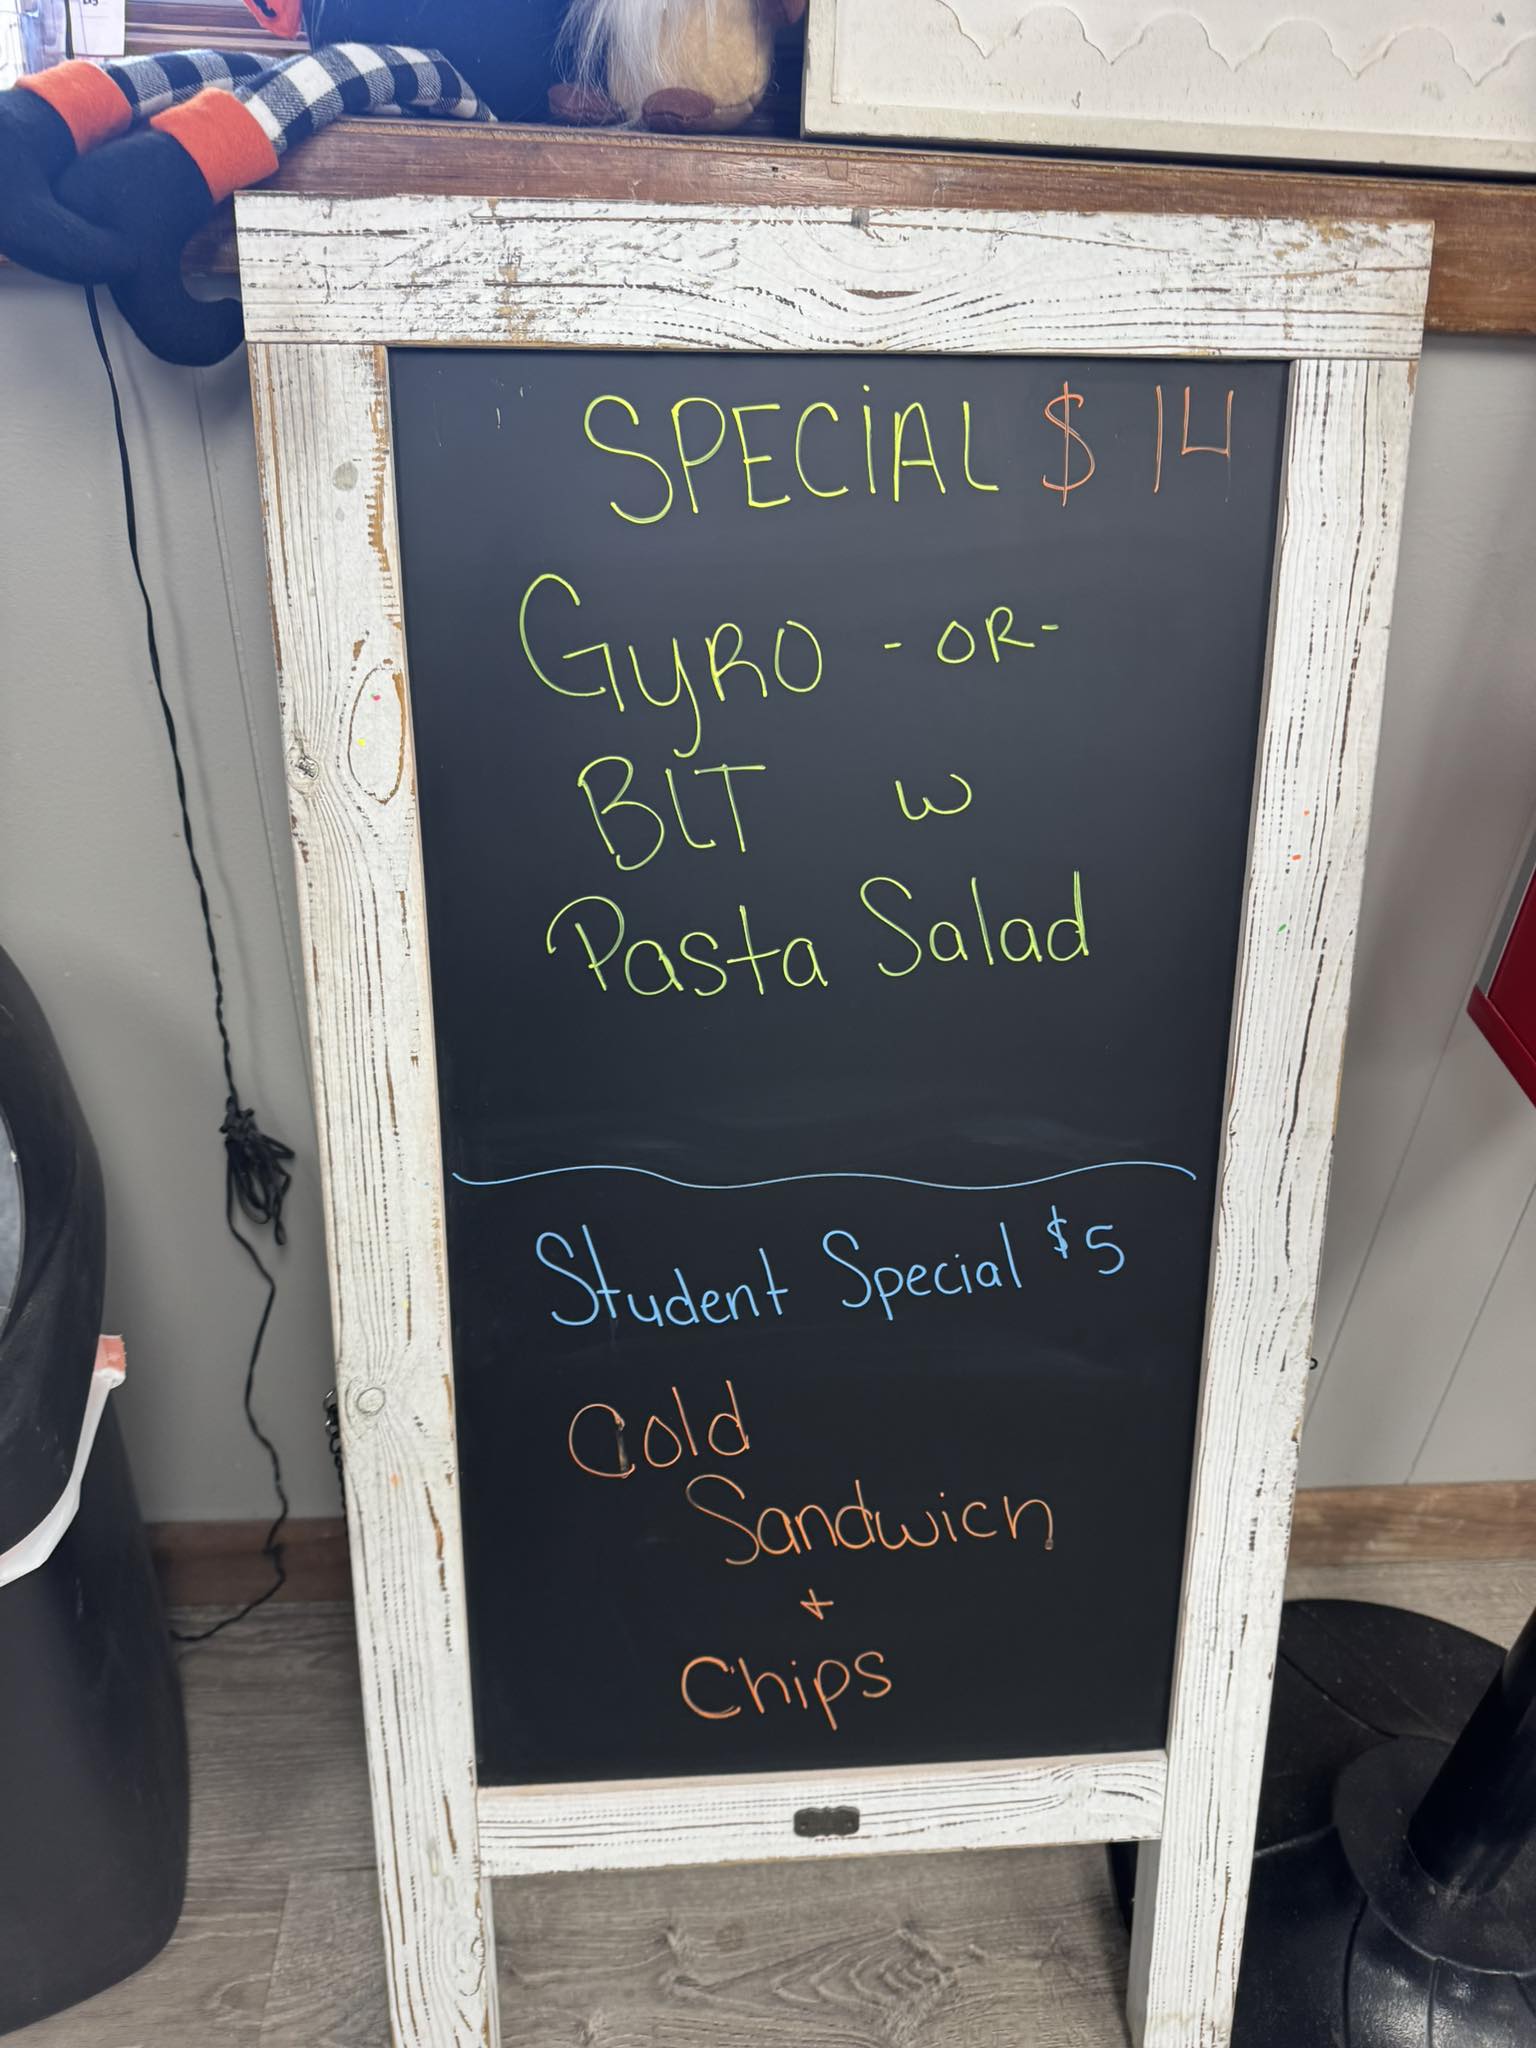 SPECIAL $ 14
GYRO - OR -
BLT w
Pasta Salad
Student Special $5
Cold
Sandwich
+
Chips